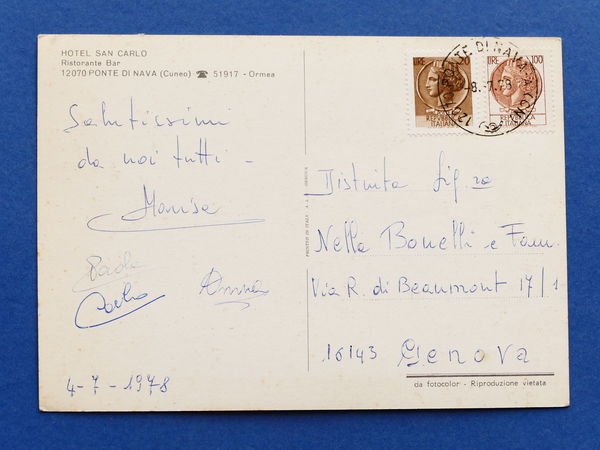 HOTEL SAN CARLO
Ristorante Bar
12070 PONTE DI NAVA (Cuneo) ☎ 51917 - Ormea
Salutissimi
da noi tutti -
Marisa
Paola
Carlo
Anna
4-7-1978
PRINTED IN ITALY
LIRE 20
REPUBBLICA ITALIANA
LIRE 100
ITALIANA
PONTE DI NAVA
8.7.78
Distinta Sig.ra
Nella Bonelli e Fam.
Via R. di Beaumont 17/1
16143 Genova
da fotocolor - Riproduzione vietata